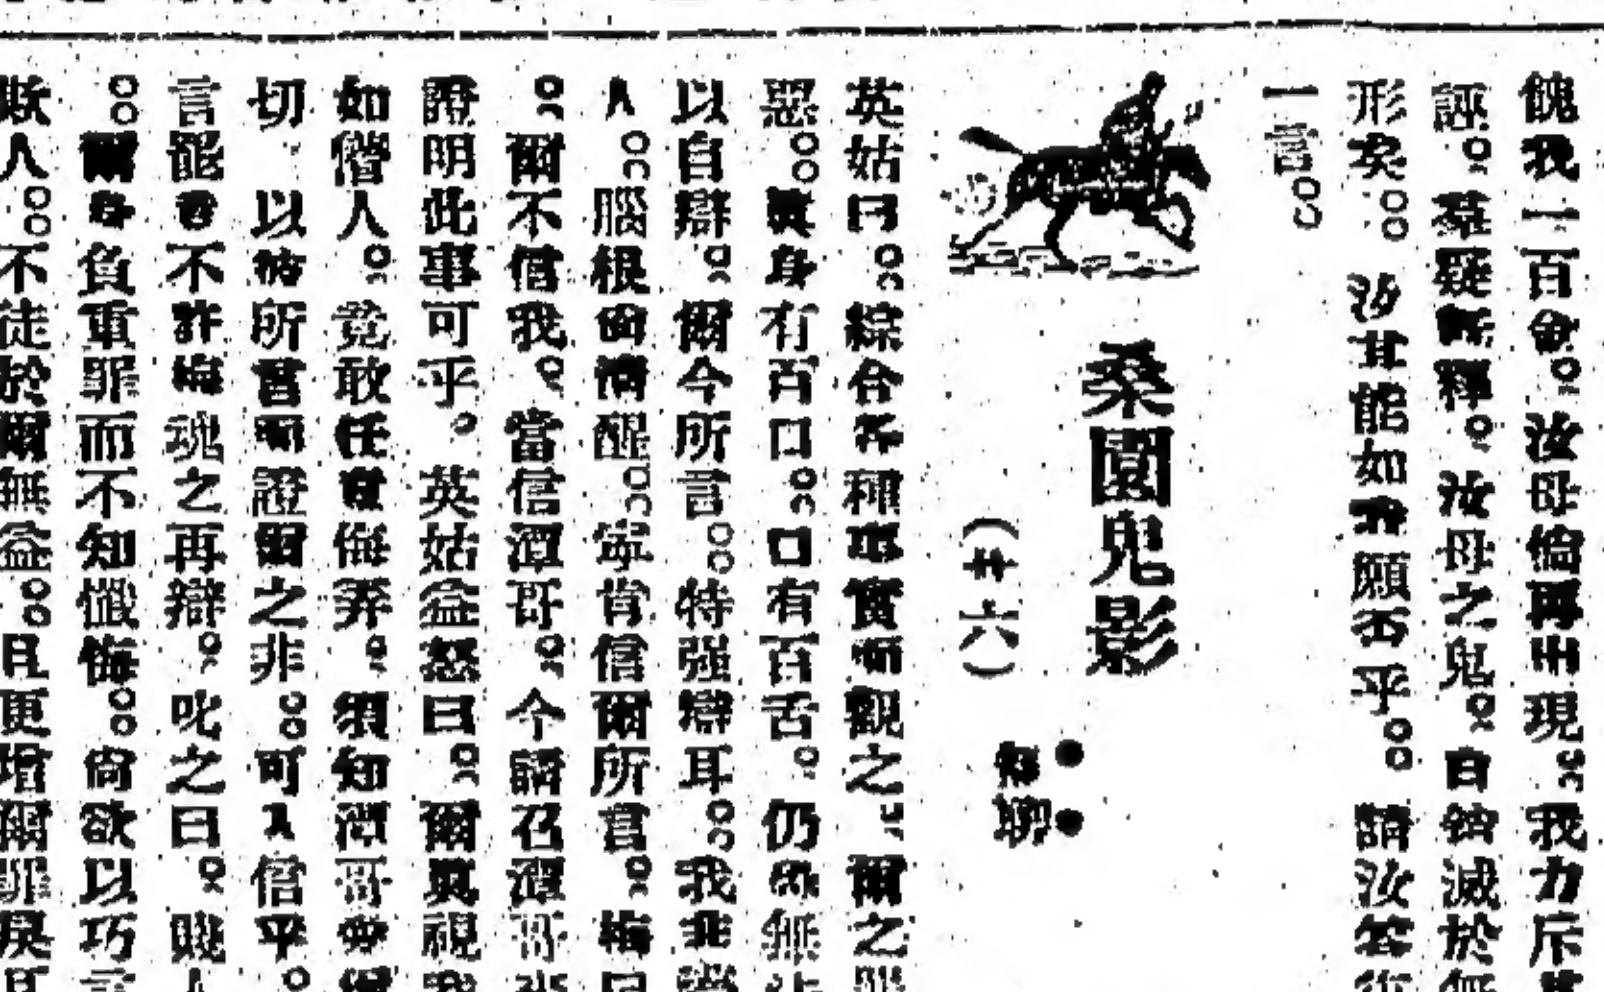 餽我一百金。汝母倘再出現。我力斥其
誣。羣疑既釋。汝母之鬼。自銷滅於無
形矣。汐其能如我願否乎。請汝答
一言。
桑園鬼影
(廿六)
英姑曰。綜合各種事實而觀之。爾之罪
惡。眞身有百口。口有百舌。仍無
以自辯。爾今所言。特强辯耳。我非
人。腦根尚清醒。寧肯信爾所言。梅曰
。爾不信我。當信潭哥。今請召潭哥
證明此事可乎。英姑益怒曰。爾眞視我
如僭人。竟敢任意侮弄。須知潭哥
切以彼所言而證爾之非。可入信乎。
言罷。不許梅魂之再辯。叱之曰。賤人
。爾身負重罪而不知懺悔。尚欲以巧言
欺人。不徒於爾無益。且更增爾罪戾耳